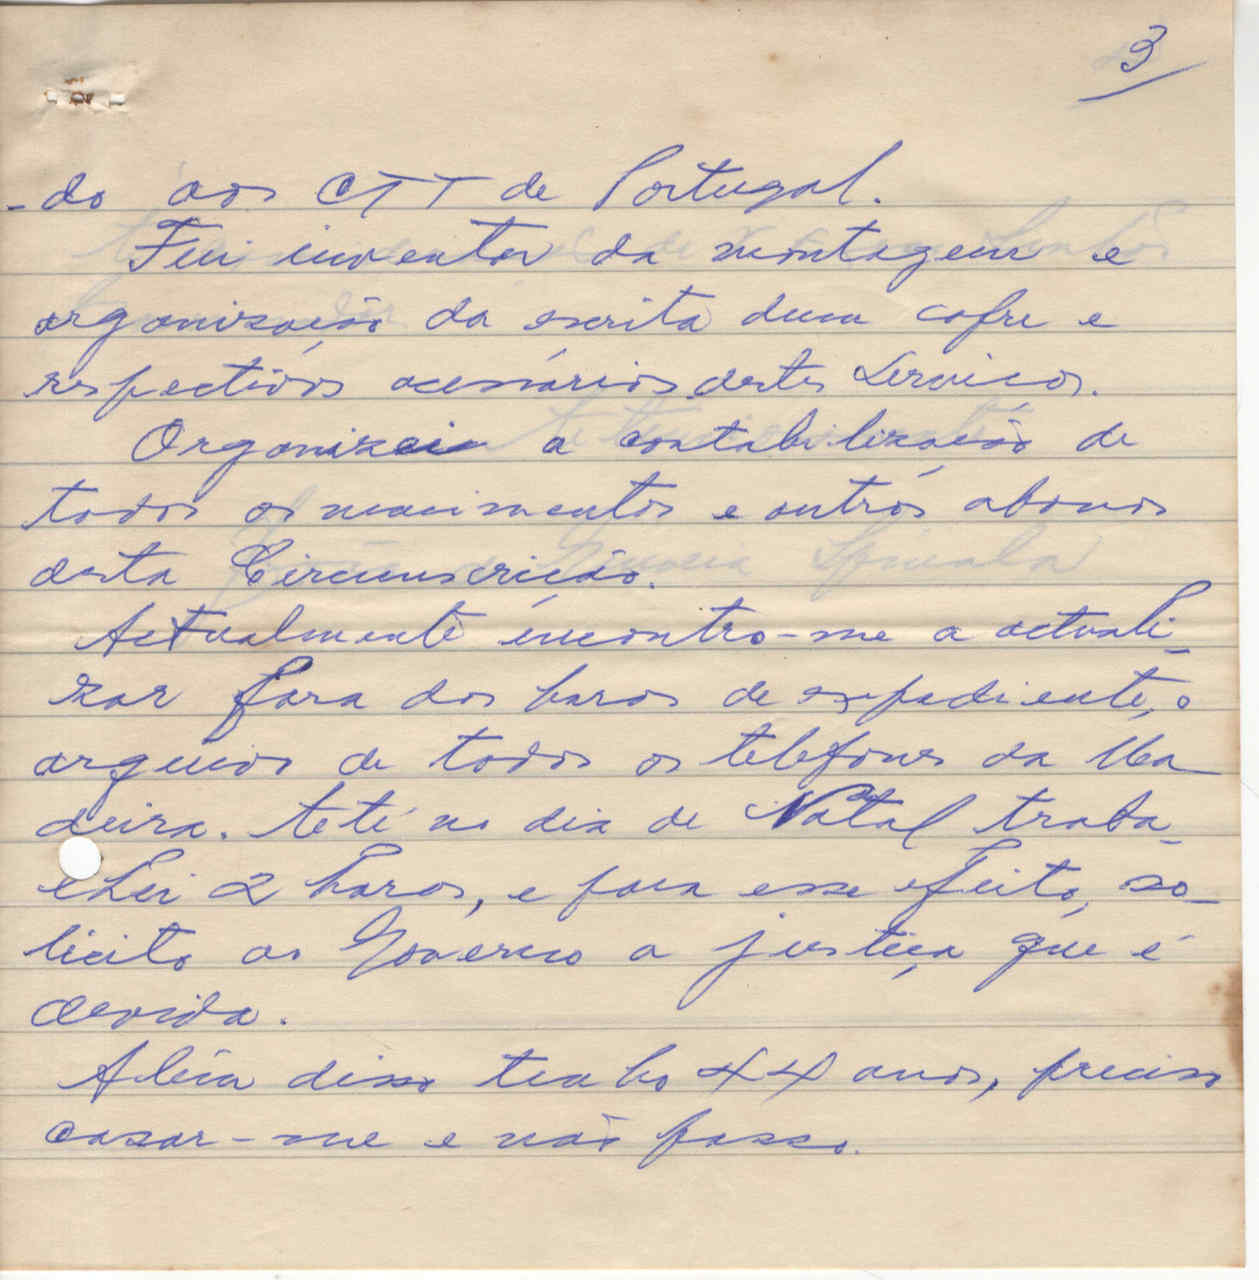 3
-do aos CTT de Portugal.
Fui inventor da montagem e
organização da escrita dum cofre e
respectivos acessários destes Serviços.
Organizei a contabilização de
todos os vencimentos e outros abonos
desta Circunscrição.
Actualmente encontro-me a actuali-
zar fora dos horas de expediente, o
arquivo de todos os telefones da Ma
deira. Até no dia de Natal traba-
lhei 2 horas, e para esse efeito, so-
licito ao Governo a justiça que é
devida.
Além disso tenho 44 anos, preciso
casar-me e não posso.